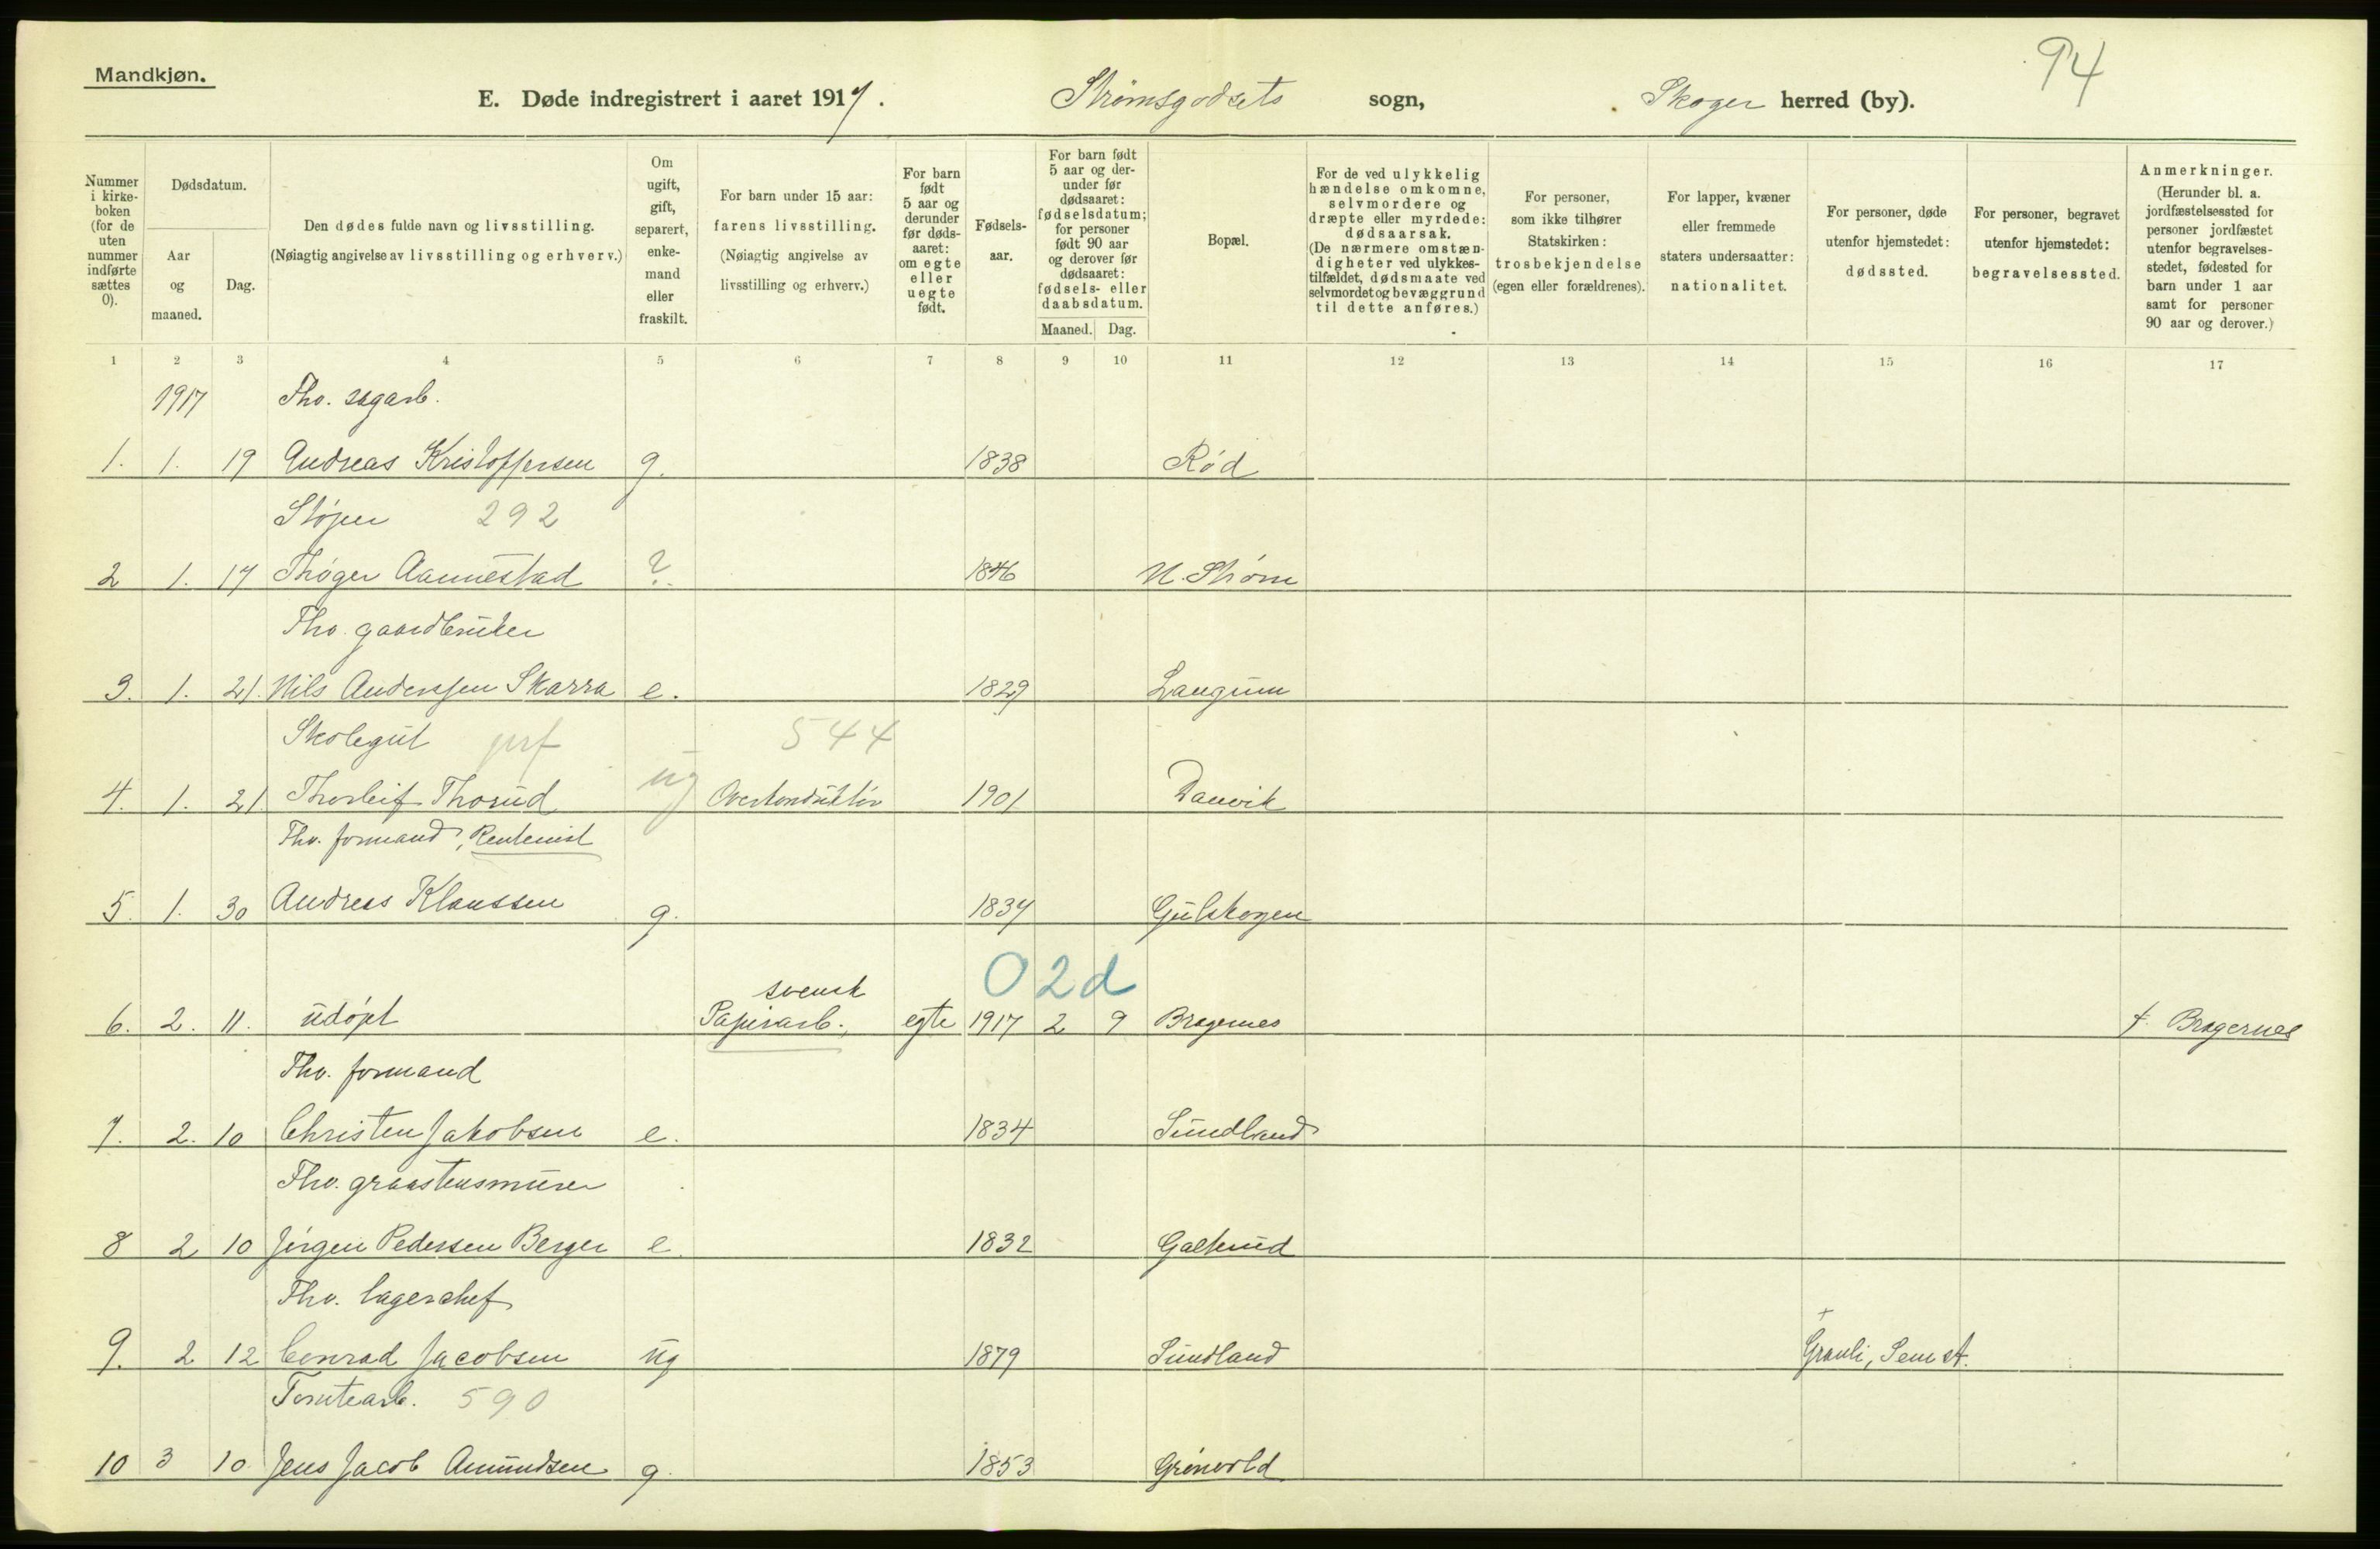 94
Mandkjøn.
E. Døde indregistrert i aaret 1917. Strømsgodsets sogn, Skoger herred (by).
Nummer i kirkeboken (for de uten nummer indførte sættes 0).
Dødsdatum.
Aar og maaned.
Dag.
Den dødes fulde navn og livsstilling.
(Nøiagtig angivelse av livsstilling og erhverv.)
Om ugift, gift, separert, enkemand eller fraskilt.
For barn under 15 aar: farens livsstilling.
(Nøiagtig angivelse av livsstilling og erhverv.)
For barn født 5 aar og derunder før dødsaaret: om egte eller uegte født.
Fødselsaar.
For barn født 5 aar og derunder før dødsaaret: fødselsdatum; for personer født 90 aar og derover før dødsaaret: fødsels- eller daabsdatum.
Maaned. Dag.
Bopæl.
For de ved ulykkelig hændelse omkomne, selvmordere og dræpte eller myrdede: dødsaarsak.
(De nærmere omstændigheter ved ulykkestilfældet, dødsmaate ved selvmordet og bevæggrund til dette anføres.)
For personer, som ikke tilhører Statskirken: trosbekjendelse (egen eller forældrenes).
For lapper, kvæner eller fremmede staters undersaatter: nationalitet.
For personer, døde utenfor hjemstedet: dødssted.
For personer, begravet utenfor hjemstedet: begravelsessted.
Anmerkninger.
(Herunder bl. a. jordfæstelsessted for personer jordfæstet utenfor begravelsesstedet, fødested for barn under 1 aar samt for personer 90 aar og derover.)
1 2 3 4 5 6 7 8 9 10 11 12 13 14 15 16 17
1917 Fhv. sagarb.
1. 1. 19 Andreas Kristoffersen g. 1838 Rød
Støper 292
2 1. 17 Thøger Aannestad ?. 1846 N. Strøm
Fhv. gaardbruker
3. 1. 21. Nils Andersen Skarra e. 1829 Langum
Skolegut 544
4. 1. 21 Thorleif Thorud ug Overkonduktør 1901 Danvik
Fhv. formand, Rentenist
5. 1. 30 Andreas Klaussen g. 1834 Gulskogen
02d
svensk
6. 2. 11. udøpt Papirarb., egte 1917 2 9 Bragernes f. Bragernes
Fhv. formand
7. 2. 10 Christen Jakobsen e. 1834 Sundland
Fhv. graastensmurer
8 2 10 Jørgen Pedersen Berger e. 1832 Galterud
Fhv. lagerchef
9. 2 12 Conrad Jacobsen ug 1879 Sundland Granli, Sem st.
Tomtearb. 590
10 3 10 Jens Jacob Amundsen g. 1853 Grønvold